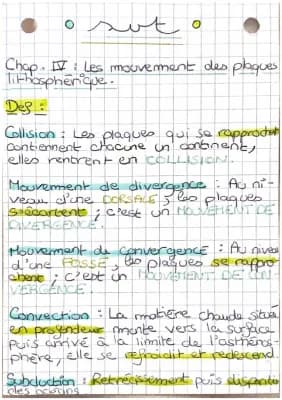 svt
Chap. IV : Les mouvement des plaques
lithosphérique.
Def :
Collision : Les plaques qui se rapprochent
contiennent chacune un continent,
elles rentrent en COLLISION.
Mouvement de divergence : Au ni-
veau d'une DORSALE, les plaques
s'écartent, c'est un MOUVEMENT DE
DIVERGENCE.
Mouvement de convergence : Au niveau
d'une FOSSE, les plaques se rappro-
chent : c'est un MOUVEMENT DE CON-
VERGENCE.
Convection : La matière chaude situé
en profondeur monte vers la surface
puis arrivé à la limite de l'asthénos-
phère, elle se refroidit et redescend.
Subduction : Retrecissement puis disparition
des océans